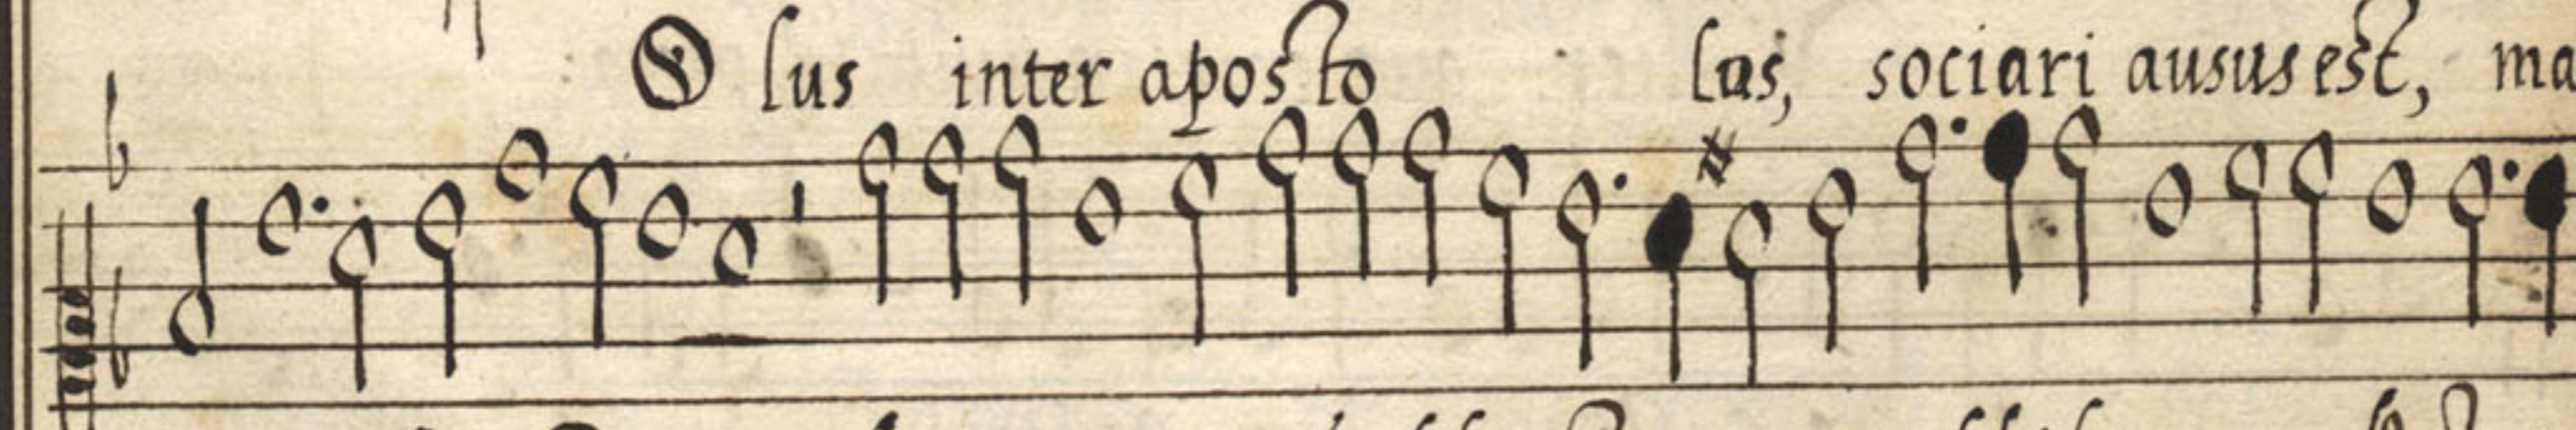 Solus inter apostolos, sociari ausus est, ma